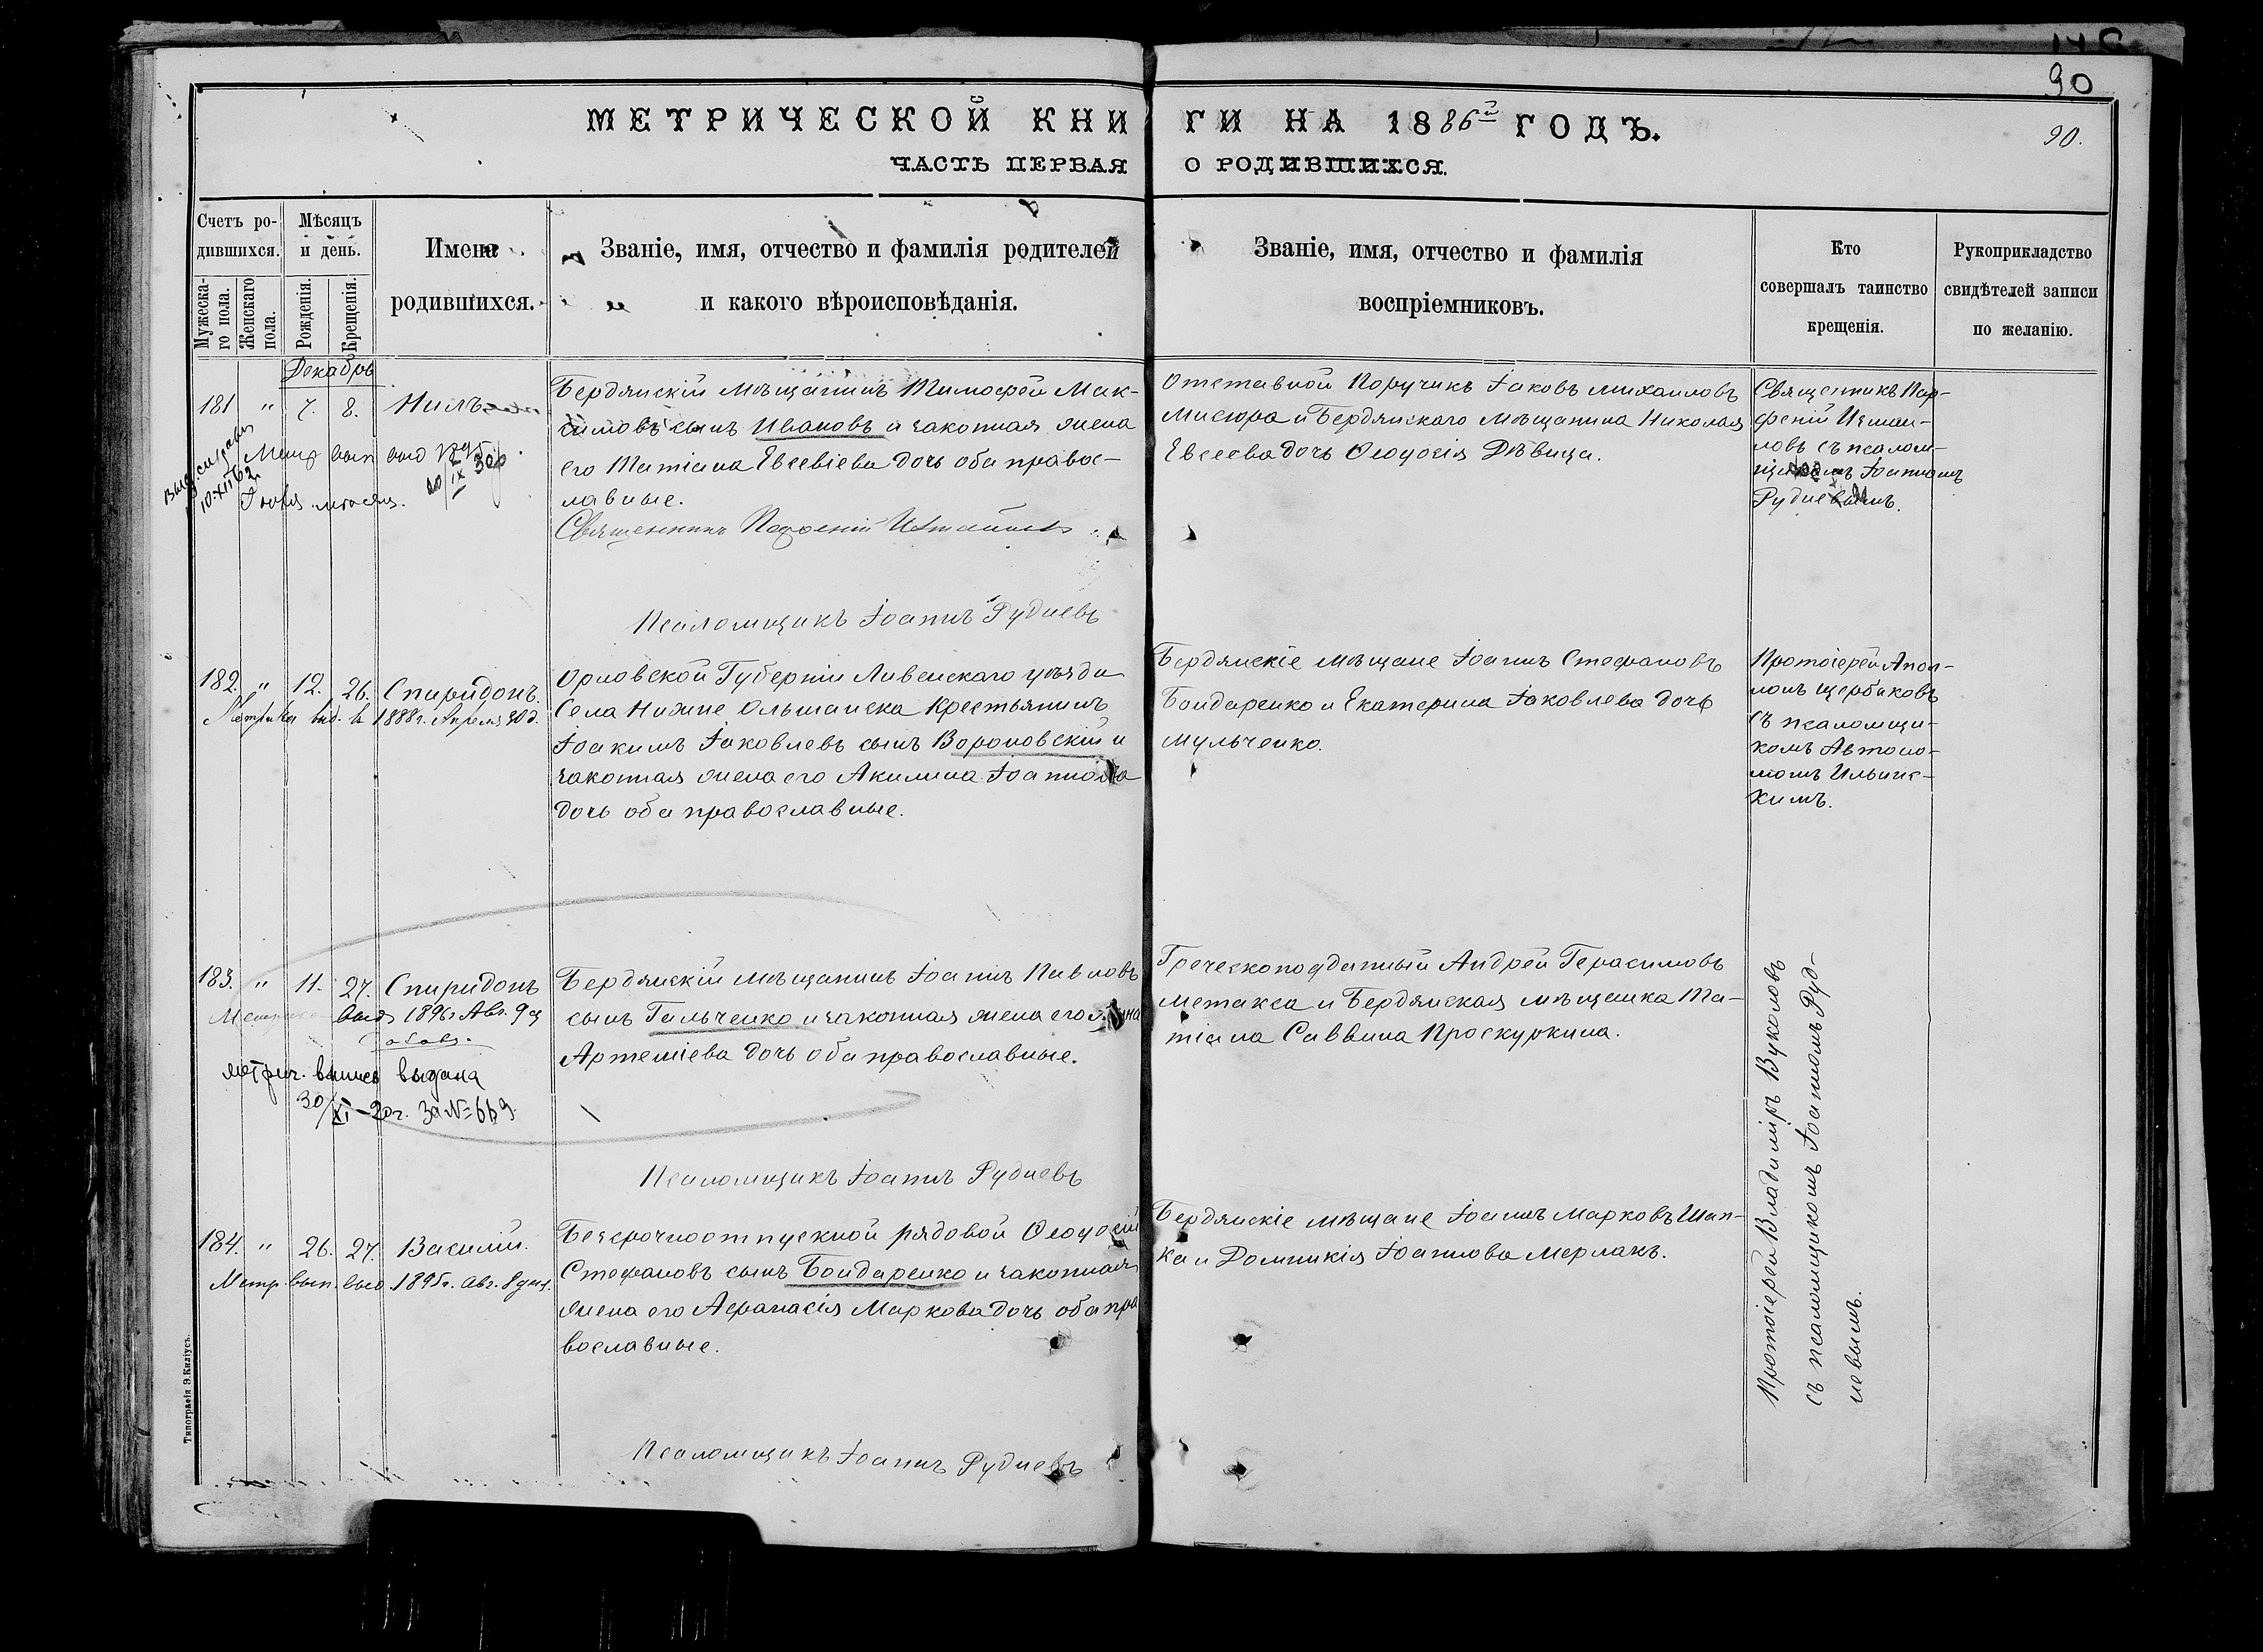 90
МЕТРИЧЕСКОЙ КНИГИ НА 1886й ГОДЪ.
90.
ЧАСТЬ ПЕРВАЯ О РОДИВШИХСЯ.
Счетъ родившихся.
Мужескаго пола.
Женскаго пола.
Мѣсяцъ и день.
Рожденія.
Крещенія.
Имена
родившихся.
Званіе, имя, отчество и фамилія родителей
и какого вѣроисповѣданія.
Званіе, имя, отчество и фамилія
воспріемниковъ.
Кто
совершалъ таинство
крещенія.
Рукоприкладство
свидѣтелей записи
по желанію.
Декабрь
181 " 7. 8. Нилъ
Бердянскій мѣщанинъ Тимофей Мак-
симовъ сынъ Ивановъ и законная жена
его Татіана Евсевіева дочь оба правос-
лавные.
Священникъ Парфеній Измаиловъ
Псаломщикъ Іоаннъ Рудневъ
Отставной Поручикъ Іаковъ Михаиловъ
Мисюра и Бердянскаго мѣщанина Николая
Евсеева дочь Ѳеодосія Дѣвица.
Священникъ Пар-
феній Измаи-
ловъ съ псалом-
щикомъ Іоанномъ
Рудневымъ.
182. " 12. 26. Спиридонъ.
Метрика выд. въ 1888г. Апреля 20 д.
Орловской Губерніи Ливенскаго уѣзда
Села Нижне Ольшанска Крестьянинъ
Іоакимъ Іаковлевъ сынъ Вороновскій и
законная жена его Акилина Іоаннова
дочь оба православные.
Бердянскіе мѣщане Іоаннъ Стефановъ
Бондаренко и Екатерина Іаковлева дочь
Мульченко.
Протоіерей Апол-
лонъ Щербаковъ
съ псаломщи-
комъ Автоно-
момъ Ильинс-
кимъ.
183. " 11. 27. Спиридонъ
выд. 1896г Авг. 9 д
метрич. выпись выдана
30/XI-20г. За №669.
Бердянскій мѣщанинъ Іоаннъ Павловъ
сынъ Гальченко и законная жена его Анна
Артеміева дочь оба православные.
Псаломщикъ Іоаннъ Рудневъ
Греческоподданный Андрей Герасимовъ
Метакса и Бердянская мѣщанка Та-
тіана Саввина Проскуркина.
Протоіерей Владиміръ Вуколовъ
съ псаломщикомъ Іоанномъ Руд-
невымъ.
184. " 26. 27. Василій.
Метр. вып. выд. 1895г. Авг. 8 дня.
Безсрочноотпускной рядовой Ѳеодосій
Стефановъ сынъ Бондаренко и законная
жена его Афанасія Маркова дочь оба пра
вославные.
Псаломщикъ Іоаннъ Рудневъ
Бердянскіе мѣщане Іоаннъ Марковъ Шап-
ка и Домникія Іоаннова Мерлакъ.
Типографія Э. Килиусъ.